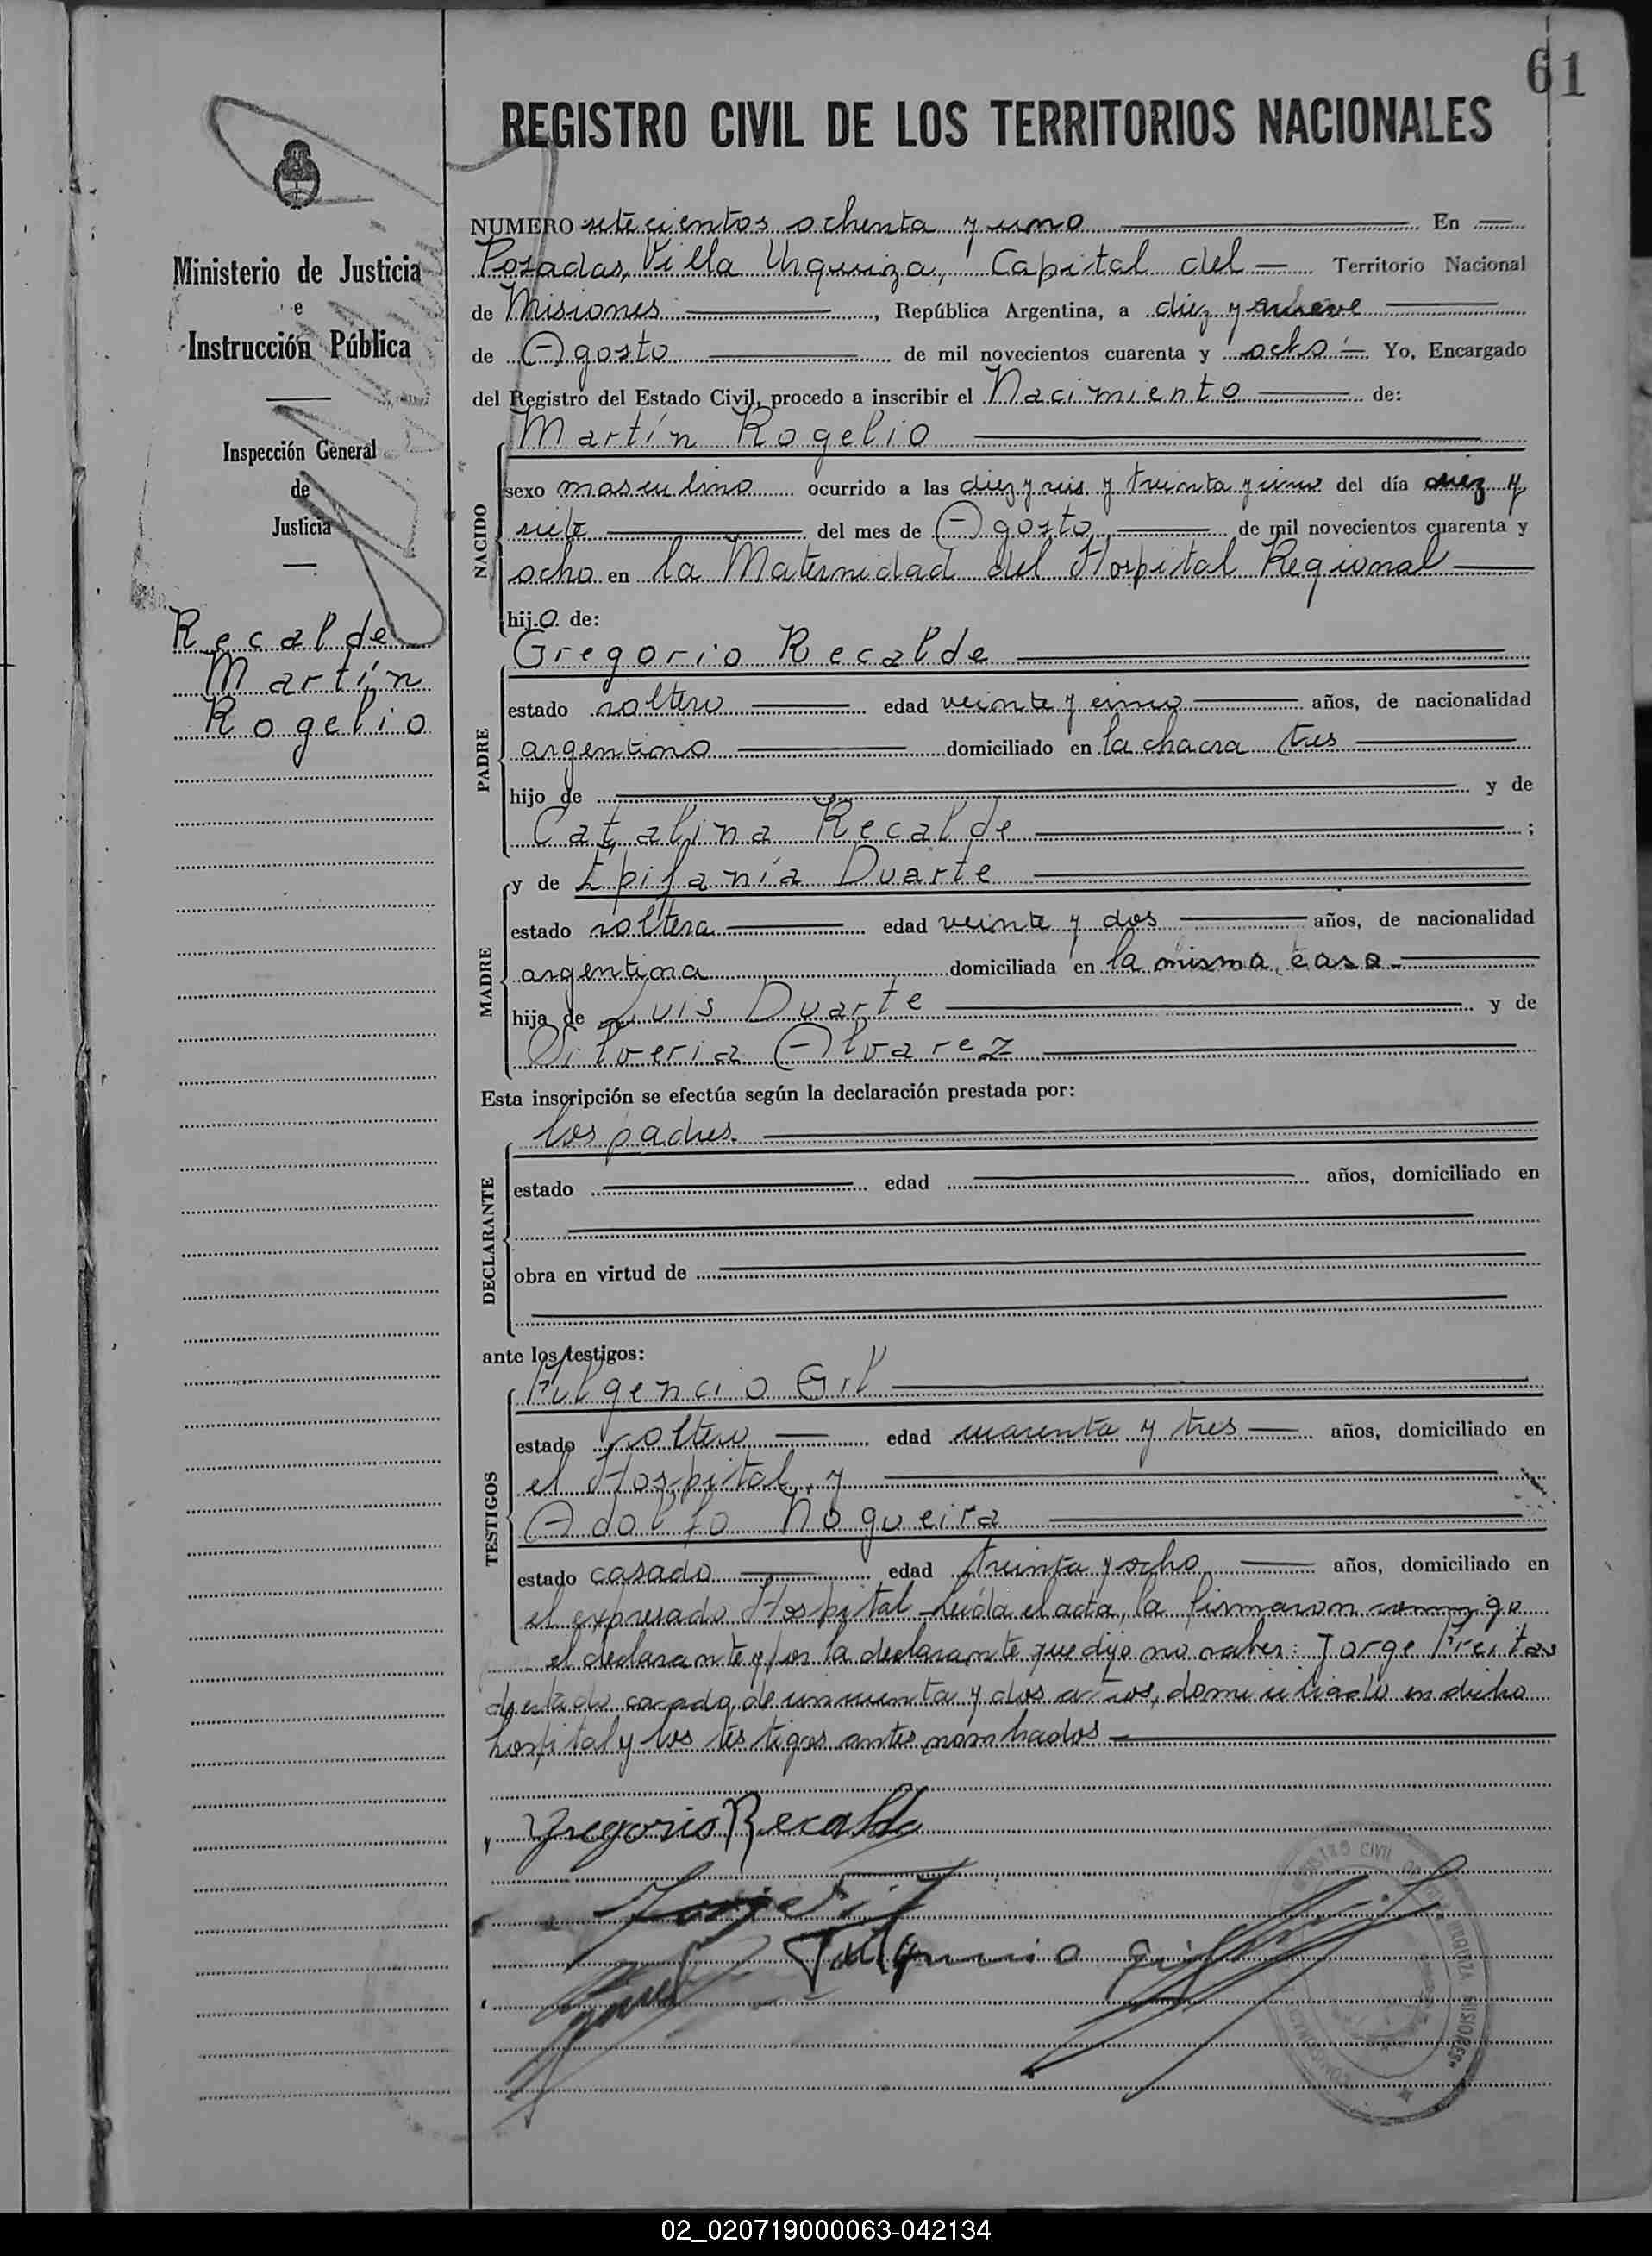 61
REGISTRO CIVIL DE LOS TERRITORIOS NACIONALES
Ministerio de Justicia
e
Instrucción Pública
Inspección General
de
Justicia
Recalde
Martín
Rogelio
NUMERO setecientos ochenta y uno En
Posadas, Villa Urquiza, Capital del Territorio Nacional
de Misiones, República Argentina, a diez y nueve
de Agosto de mil novecientos cuarenta y ocho Yo, Encargado
del Registro del Estado Civil, procedo a inscribir el Nacimiento de:
NACIDO
Martín Rogelio
sexo masculino ocurrido a las diez y seis y treinta y cinco del día diez y
siete del mes de Agosto de mil novecientos cuarenta y
ocho en la Maternidad del Hospital Regional
hijo de:
PADRE
Gregorio Recalde
estado soltero edad veinte y cinco años, de nacionalidad
argentino domiciliado en la chacra tres
hijo de y de
Catalina Recalde ;
MADRE
y de Epifanía Duarte
estado soltera edad veinte y dos años, de nacionalidad
argentina domiciliada en la misma casa
hija de Luis Duarte y de
Silveria Alvarez
Esta inscripción se efectúa según la declaración prestada por:
DECLARANTE
los padres.
estado edad años, domiciliado en
obra en virtud de
ante los testigos:
TESTIGOS
Fulgencio Gil
estado soltero edad cuarenta y tres años, domiciliado en
el Hospital y
Adolfo Nogueira
estado casado edad treinta y ocho años, domiciliado en
el expresado Hospital Leída el acta, la firmaron conmigo
el declarante y por la declarante que dijo no saber: Jorge Freitas
de estado casado de cincuenta y dos años, domiciliado en dicho
hospital y los testigos antes nombrados
Gregorio Recalde
Fulgencio Gil
REGISTRO CIVIL URQUIZA MISIONES
02_020719000063-042134